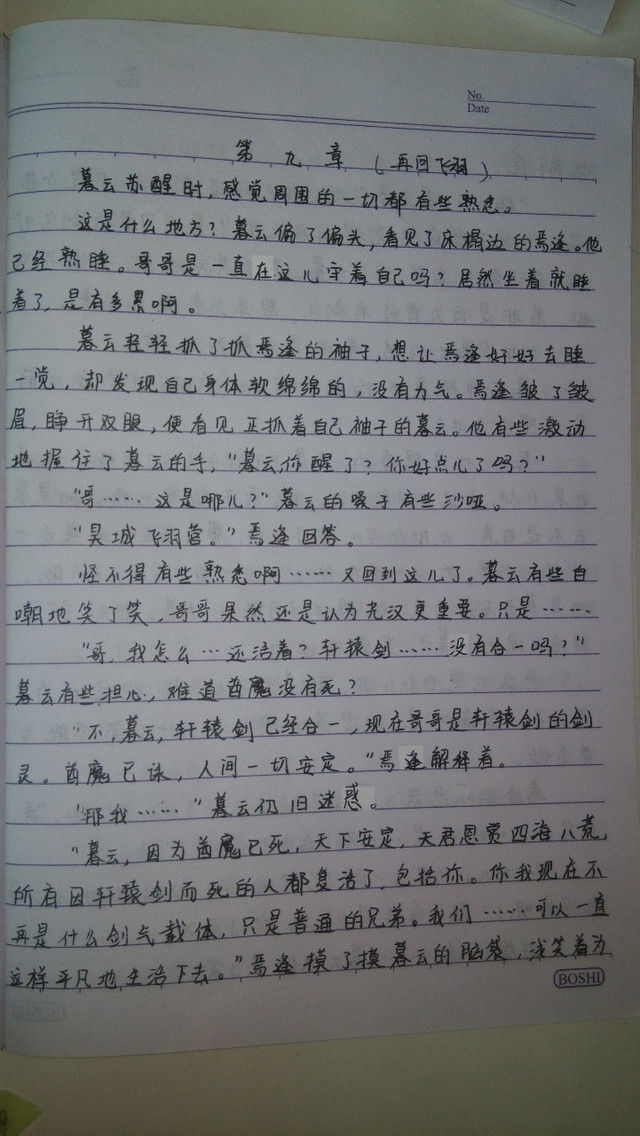 No.
Date
第九章(再回飞羽)
暮云苏醒时,感觉周围的一切都有些熟悉。
这是什么地方?暮云偏了偏头,看见了床榻边的焉逢。他
已经熟睡。哥哥是一直在这儿守着自己吗?居然坐着就睡
着了,是有多累啊。
暮云轻轻抓了抓焉逢的袖子,想让焉逢好好去睡
一觉,却发现自己身体软绵绵的,没有力气。焉逢皱了皱
眉,睁开双眼,便看见正抓着自己袖子的暮云。他有些激动
地握住了暮云的手,“暮云,你醒了?你好点儿了吗?”
“哥……这是哪儿?”暮云的嗓子有些沙哑。
“昊城飞羽营。”焉逢回答。
怪不得有些熟悉啊……又回到这儿了。暮云有些自
嘲地笑了笑,哥哥果然还是认为克汉更重要。只是……
“哥,我怎么…还活着?轩辕剑……没有合一吗?”
暮云有些担心,难道酋魔没有死?
“不,暮云,轩辕剑已经合一,现在哥哥是轩辕剑的剑
灵。酋魔已诛,人间一切安定。”焉逢解释着。
“那我……”暮云仍旧迷惑。
“暮云,因为酋魔已死,天下安定,天君恩赏四海八荒,
所有因轩辕剑而死的人都复活了,包括你。你我现在不
再是什么剑气载体,只是普通的兄弟。我们……可以一直
这样平凡地生活下去。”焉逢摸了摸暮云的脑袋,浅笑着为
BOSHI